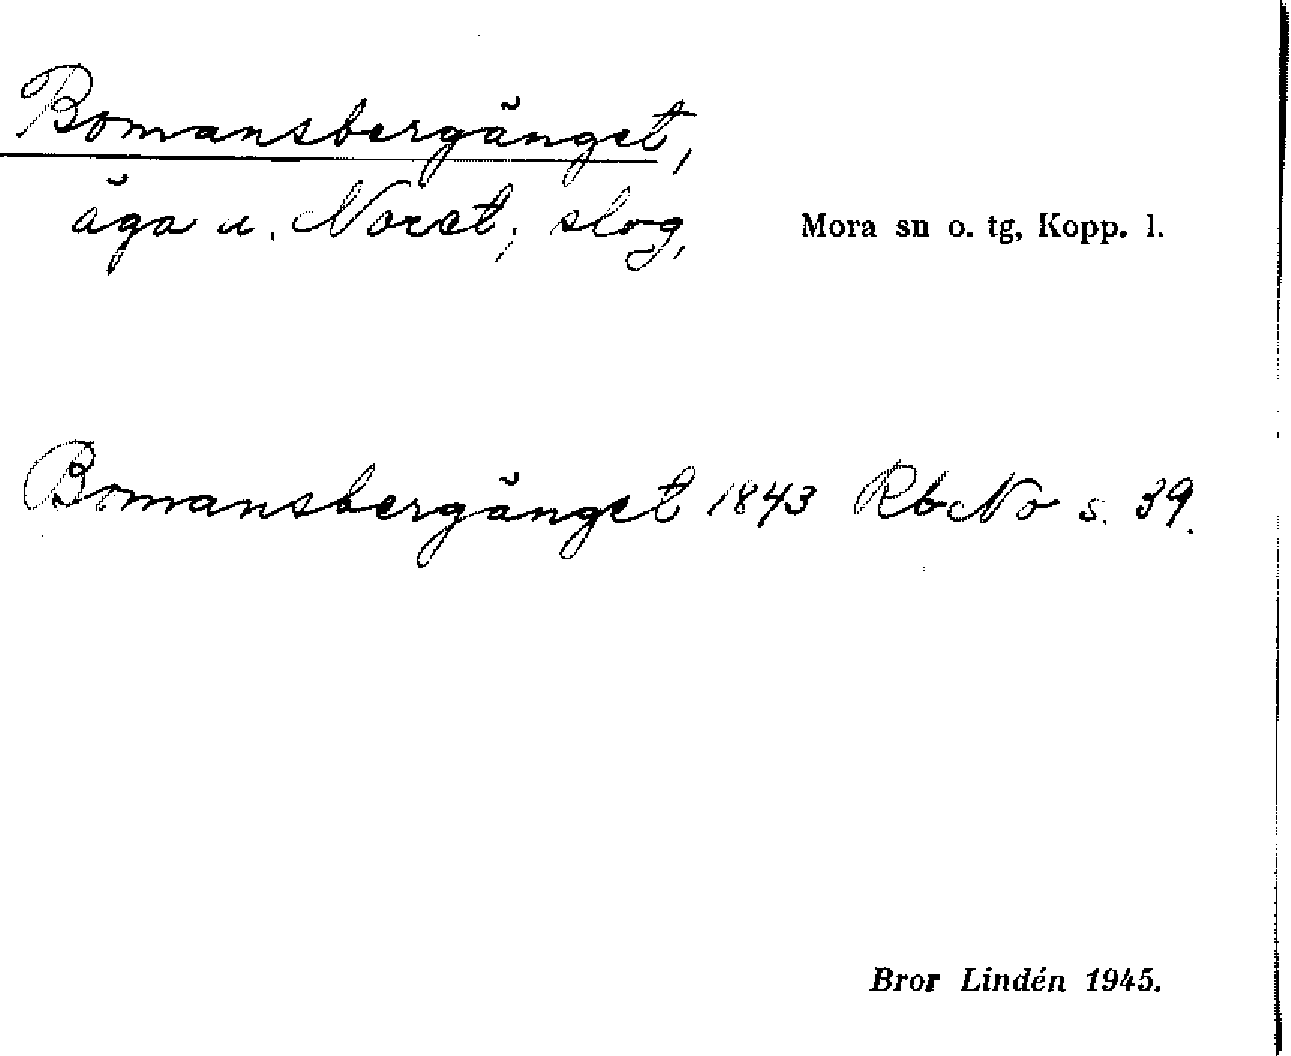 Bomansbergänget,
äga u. Noret, slog,
Mora sn o. tg, Kopp. l.
Bomansbergänget 1843 RbNo s. 39.
Bror Lindén 1945.